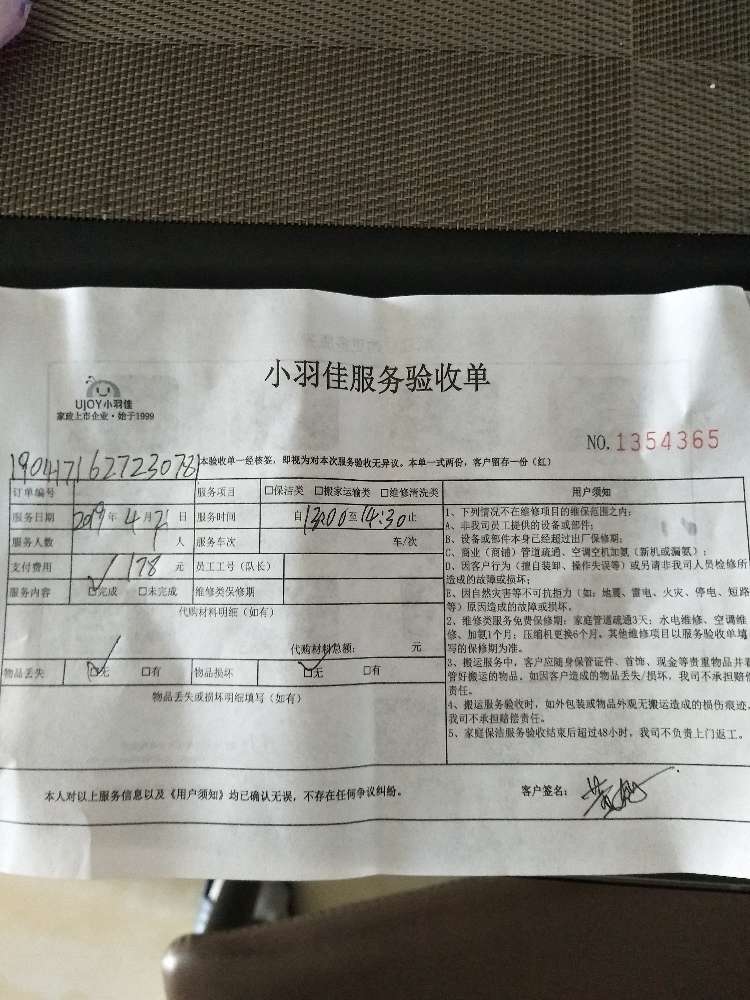 小羽佳服务验收单
UJOY小羽佳
家政上市企业·始于1999
NO.1354365
190417162723078
本验收单一经核签，即视为对本次服务验收无异议。本单一式两份，客户留存一份（红）
订单编号 服务项目 □保洁类 □搬家运输类 □维修清洗类
服务日期 2019年4月21日 服务时间 自13:00至14:30止
服务人数 人 服务车次 车/次
支付费用 178 元 员工工号（队长）
服务内容 ☑完成 □未完成 维修类保修期
代购材料明细（如有）
代购材料总额： 元
物品丢失 ☑无 □有 物品损坏 ☑无 □有
物品丢失或损坏明细填写（如有）
用户须知
1、下列情况不在维修项目的维保范围之内：
A、非我司员工提供的设备或部件；
B、设备或部件本身已经超过出厂保修期；
C、商业（商铺）管道疏通、空调空机加氨（新机或漏氨）；
D、因客户行为（擅自装卸、操作失误等）或另请非我司人员检修所
造成的故障或损坏；
E、因自然灾害等不可抗拒力（如：地震、雷电、火灾、停电、短路
等）原因造成的故障或损坏。
2、维修类服务免费保修期：家庭管道疏通3天；水电维修、空调维
修、加氨1个月；压缩机更换6个月。其他维修项目以服务验收单填
写的保修期为准。
3、搬运服务中，客户应随身保管证件、首饰、现金等贵重物品并看
管好搬运的物品，如因客户造成的物品丢失/损坏，我司不承担赔偿
责任。
4、搬运服务验收时，如外包装或物品外观无搬运造成的损伤痕迹，
我司不承担赔偿责任。
5、家庭保洁服务验收结束后超过48小时，我司不负责上门返工。
本人对以上服务信息以及《用户须知》均已确认无误，不存在任何争议纠纷。
客户签名：